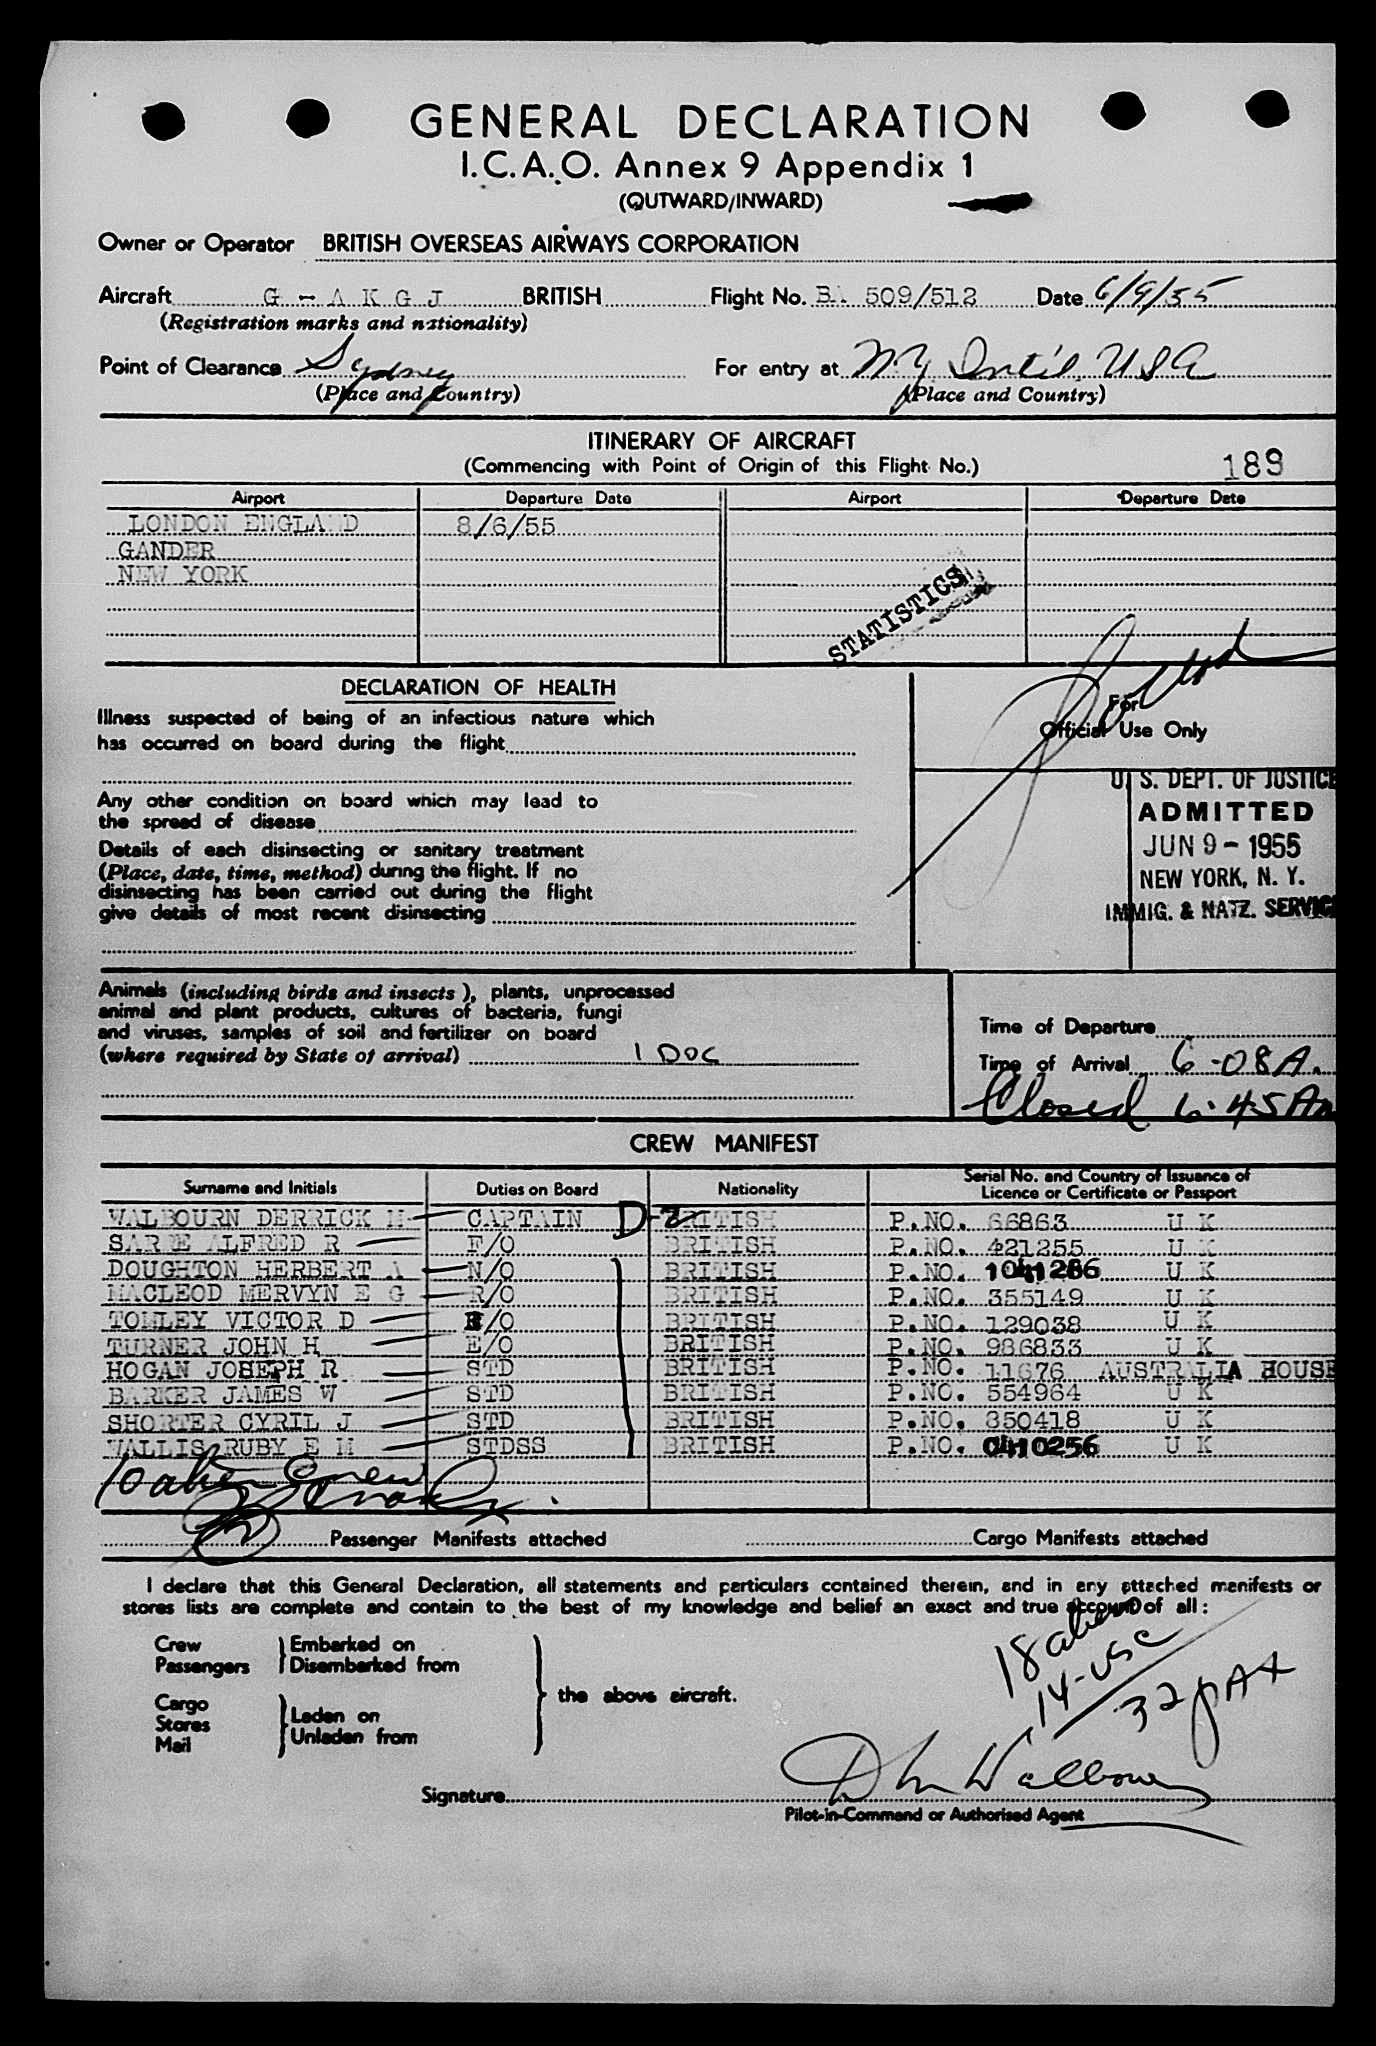 GENERAL DECLARATION
I.C.A.O. Annex 9 Appendix 1
(OUTWARD/INWARD)
Owner or Operator BRITISH OVERSEAS AIRWAYS CORPORATION
Aircraft G - A K G J BRITISH Flight No. BA 509/512 Date 6/9/55
(Registration marks and nationality)
Point of Clearance Sydney For entry at N.Y. Int'l. USA
(Place and Country) (Place and Country)
ITINERARY OF AIRCRAFT
(Commencing with Point of Origin of this Flight No.) 189
Airport Departure Date Airport Departure Date
LONDON ENGLAND 8/6/55
GANDER
NEW YORK
STATISTICS
DECLARATION OF HEALTH
Illness suspected of being of an infectious nature which
has occurred on board during the flight
For
Official Use Only
Any other condition on board which may lead to
the spread of disease
Details of each disinsecting or sanitary treatment
(Place, date, time, method) during the flight. If no
disinsecting has been carried out during the flight
give details of most recent disinsecting
U. S. DEPT. OF JUSTICE
ADMITTED
JUN 9 - 1955
NEW YORK, N. Y.
IMMIG. & NATZ. SERVICE
Animals (including birds and insects), plants, unprocessed
animal and plant products, cultures of bacteria, fungi
and viruses, samples of soil and fertilizer on board
(where required by State of arrival) 1 DOG
Time of Departure
Time of Arrival 6-08A.
Closed 6:45 Am
CREW MANIFEST
Surname and Initials Duties on Board Nationality Serial No. and Country of Issuance of Licence or Certificate or Passport
WALBOURN DERRICK H CAPTAIN D-2 BRITISH P.NO. 66863 U K
ALFRED R F/O BRITISH P.NO. 421255 U K
DOUGHTON HERBERT A N/O BRITISH P.NO. 1041286 U K
MACLEOD MERVYN E G R/O BRITISH P.NO. 355149 U K
TOLLEY VICTOR D E/O BRITISH P.NO. 129038 U K
TURNER JOHN H E/O BRITISH P.NO. 986833 U K
HOGAN JOSEPH R STD BRITISH P.NO. 11676 AUSTRALIA HOUSE
BARKER JAMES W STD BRITISH P.NO. 554964 U K
SHORTER CYRIL J STD BRITISH P.NO. 350418 U K
WALLIS RUBY E M STDSS BRITISH P.NO. 0410256 U K
10 alien Crew
Passenger Manifests attached Cargo Manifests attached
I declare that this General Declaration, all statements and particulars contained therein, and in any attached manifests or
stores lists are complete and contain to the best of my knowledge and belief an exact and true account of all:
Crew
Passengers
Embarked on
Disembarked from
Cargo
Stores
Mail
Laden on
Unladen from
the above aircraft.
18 aliens
14-USC
32 pAx
Signature D h Walbourn
Pilot-in-Command or Authorised Agent